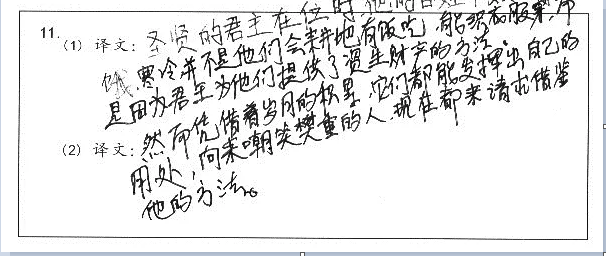 11.
(1) 译文: 圣贤的君主在位时他的百姓不
饿、寒冷并不是他们会耕地有饭吃,能织布服寒,而
是因为君主为他们提供了资生财产的方法。
(2) 译文: 然而凭借着岁月的积累,它们都能发挥出自己的
用处,向来嘲笑樊重的人,现在都来请求借鉴
他的方法。